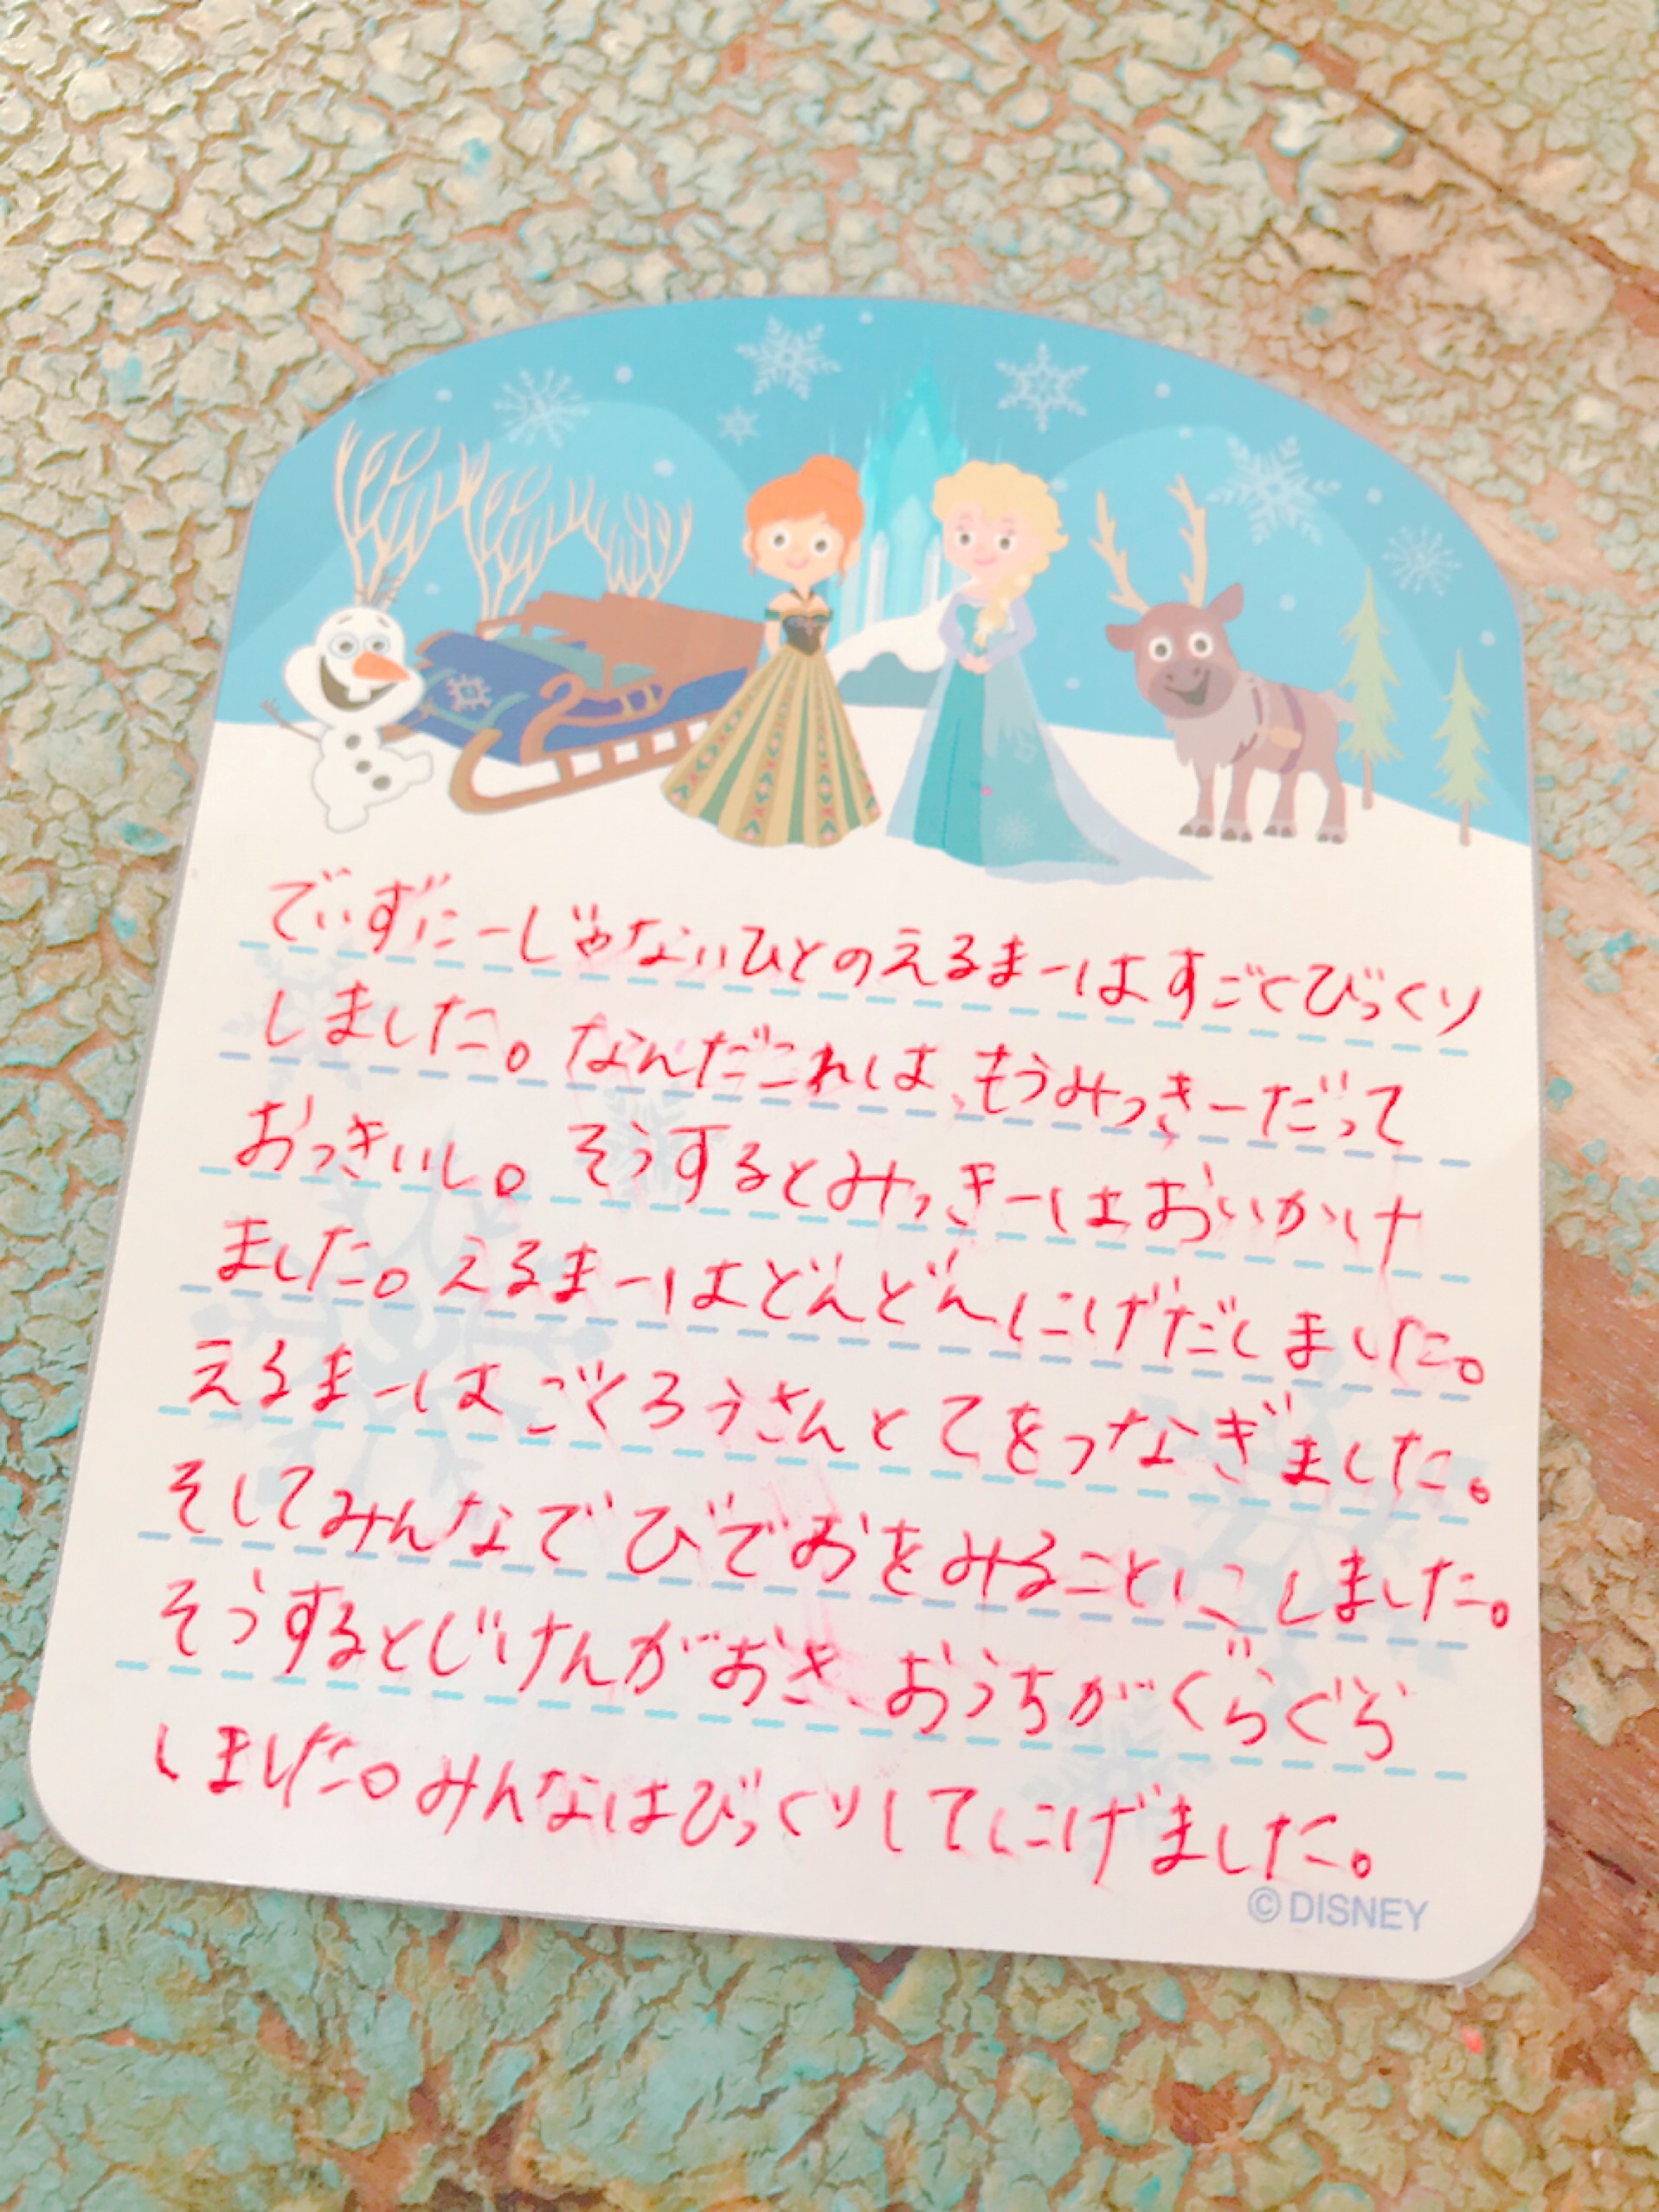 でぃずにーじゃないひとのえるまーはすごくびっくり
しました。なんだこれは、もうみっきーだって
おっきいし。そうするとみっきーはおいかけ
ました。えるまーはどんどんにげだしました。
えるまーはごくろうさんとてをつなぎました。
そしてみんなでびでおをみることにしました。
そうするとじけんがおき、おうちがぐらぐら
しました。みんなはびっくりしてにげました。
©DISNEY